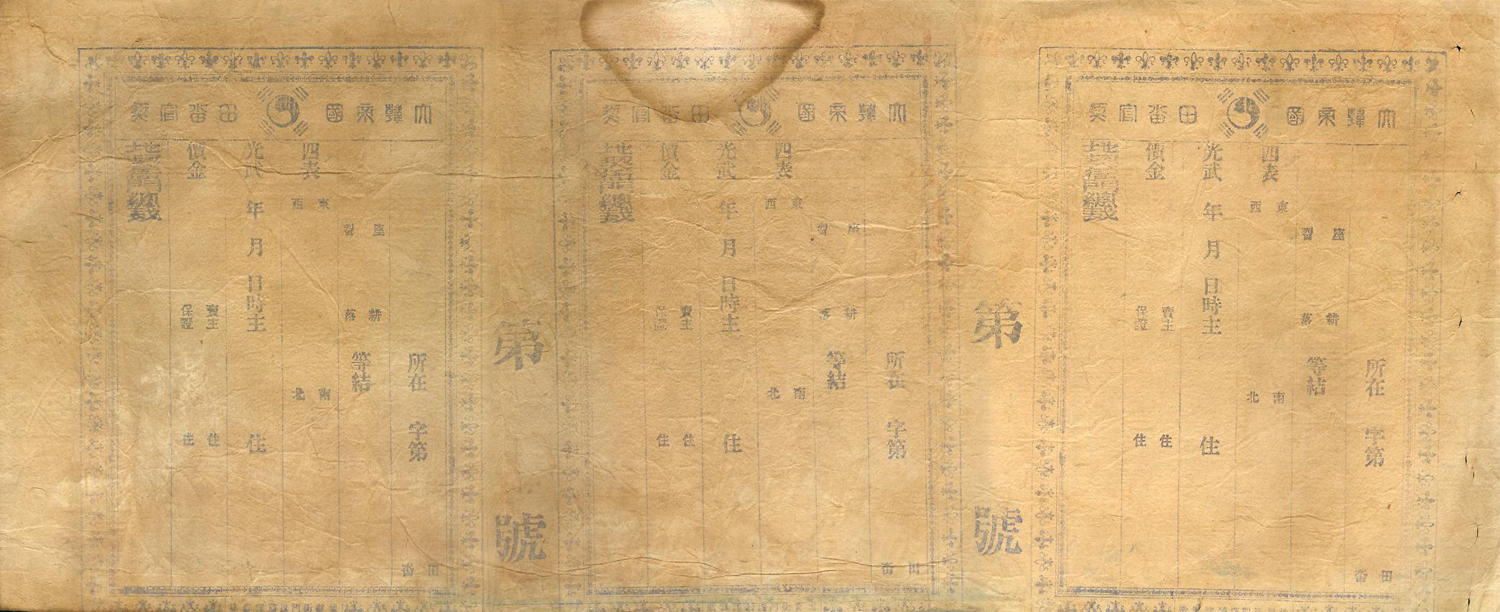 大韓帝國 田畓官契
所在 字第 田畓
座
耕落
等結
四表 東西 南北
光武 年 月 日時主 住
價金 賣主 住
保證 住
第 號
大韓帝國 田畓官契
所在 字第 田畓
座
耕落
等結
四表 東西 南北
光武 年 月 日時主 住
價金 賣主 住
保證 住
第 號
大韓帝國 田畓官契
所在 字第 田畓
座
耕落
等結
四表 東西 南北
光武 年 月 日時主 住
價金 賣主 住
保證 住